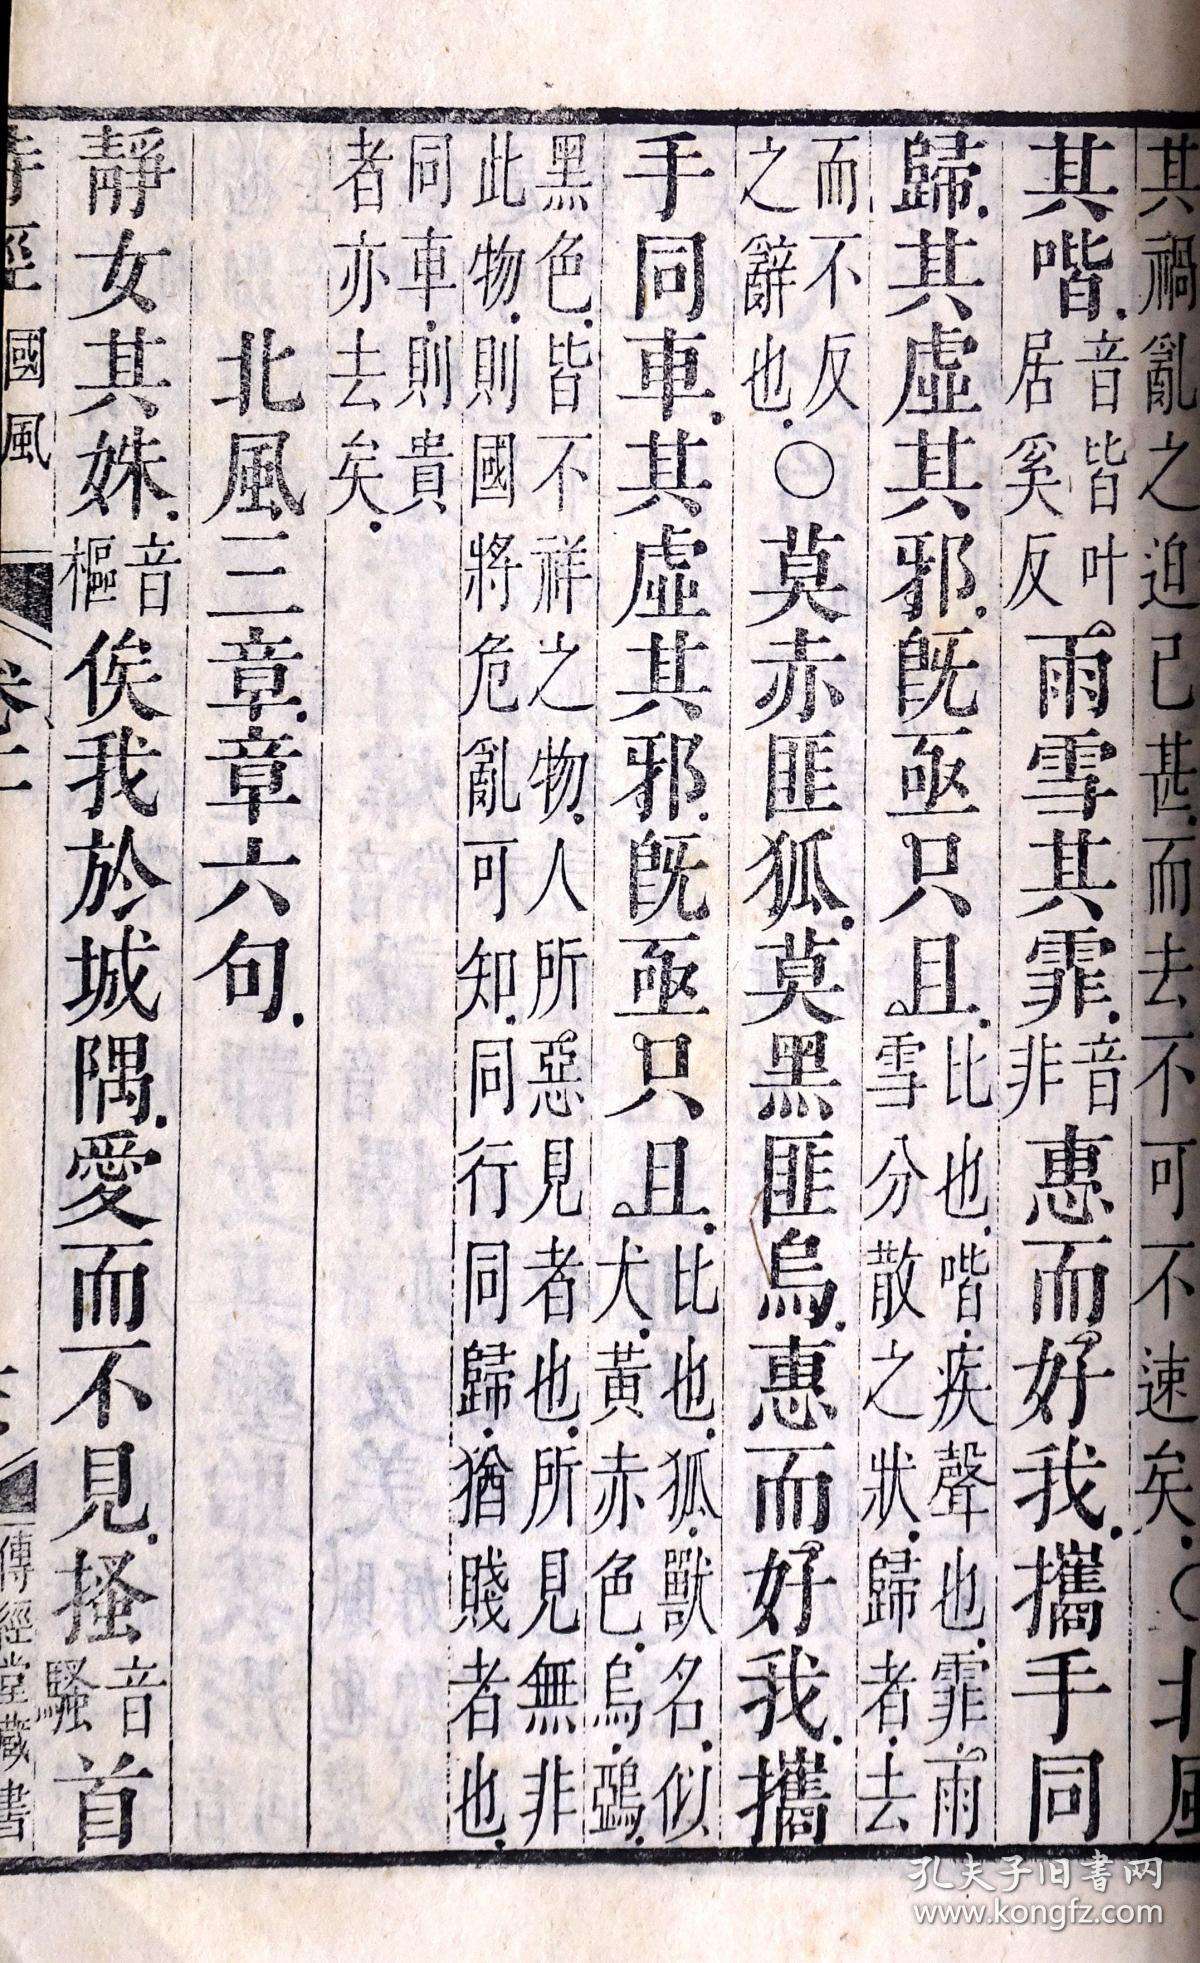 其禍亂之迫已甚而去不可不速矣○北風
其喈音皆叶居奚反雨雪其霏音非惠而好我攜手同
歸其虛其邪既亟只且比也喈疾聲也霏雨雪分散之狀歸者去
而不反之辭也○莫赤匪狐莫黑匪烏惠而好我攜
手同車其虛其邪既亟只且比也狐獸名似犬黃赤色烏鵶
黑色皆不祥之物人所惡見者也所見無非此物則國將危亂可知同行同歸猶賤者也
同車則貴者亦去矣
北風三章章六句
靜女其姝音樞俟我於城隅愛而不見搔音騷首
詩經 國風 卷二 傳經堂藏書
孔夫子旧书网
www.kongfz.com